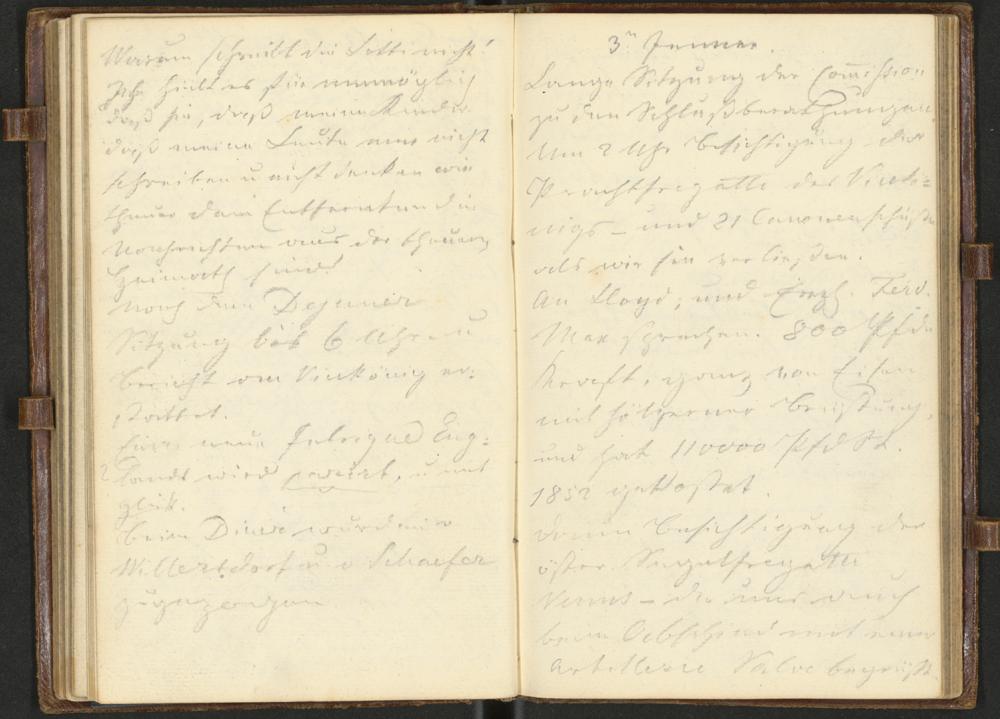 Warum schreibt die Setti nicht!
Ich hielt es für unmöglich
daß sie, daß meine Kinder
daß meine Leute mir nicht
schreiben u nicht denken wie
theuer dem Entfernten die
Nachrichten aus der theuern
Heimath sind!
Nach dem Dejeuner
Sitzung bis 6 Uhr u
Bericht am Vicekönig er:
stattet.
Eine neue Intrigue Eng:
lands wird parirt, u mit
Glück.
Beim Diner wurden
Willersdorf u Schaefer
zugezogen
3n Jenner.
Lange Sitzung der Commission
zu den Schlußberathungen
Um 2 Uhr Besichtigung der
Prachtfregatte des Vicekö=
nigs – und 21 Canonenschüße
als wir sie verließen.
An Lloyd, und Erzh. Ferd.
Max sprechen. 800 Pfde
Kraft, ganz von Eisen
mit hölzerner
und hat 110000 Pfd St.
1852 gekostet.
Dann Besichtigung der
öster. Segelfregatte
Venus – die uns auch
beim Abschied mit einer
Artillerie Salve begrüßt.